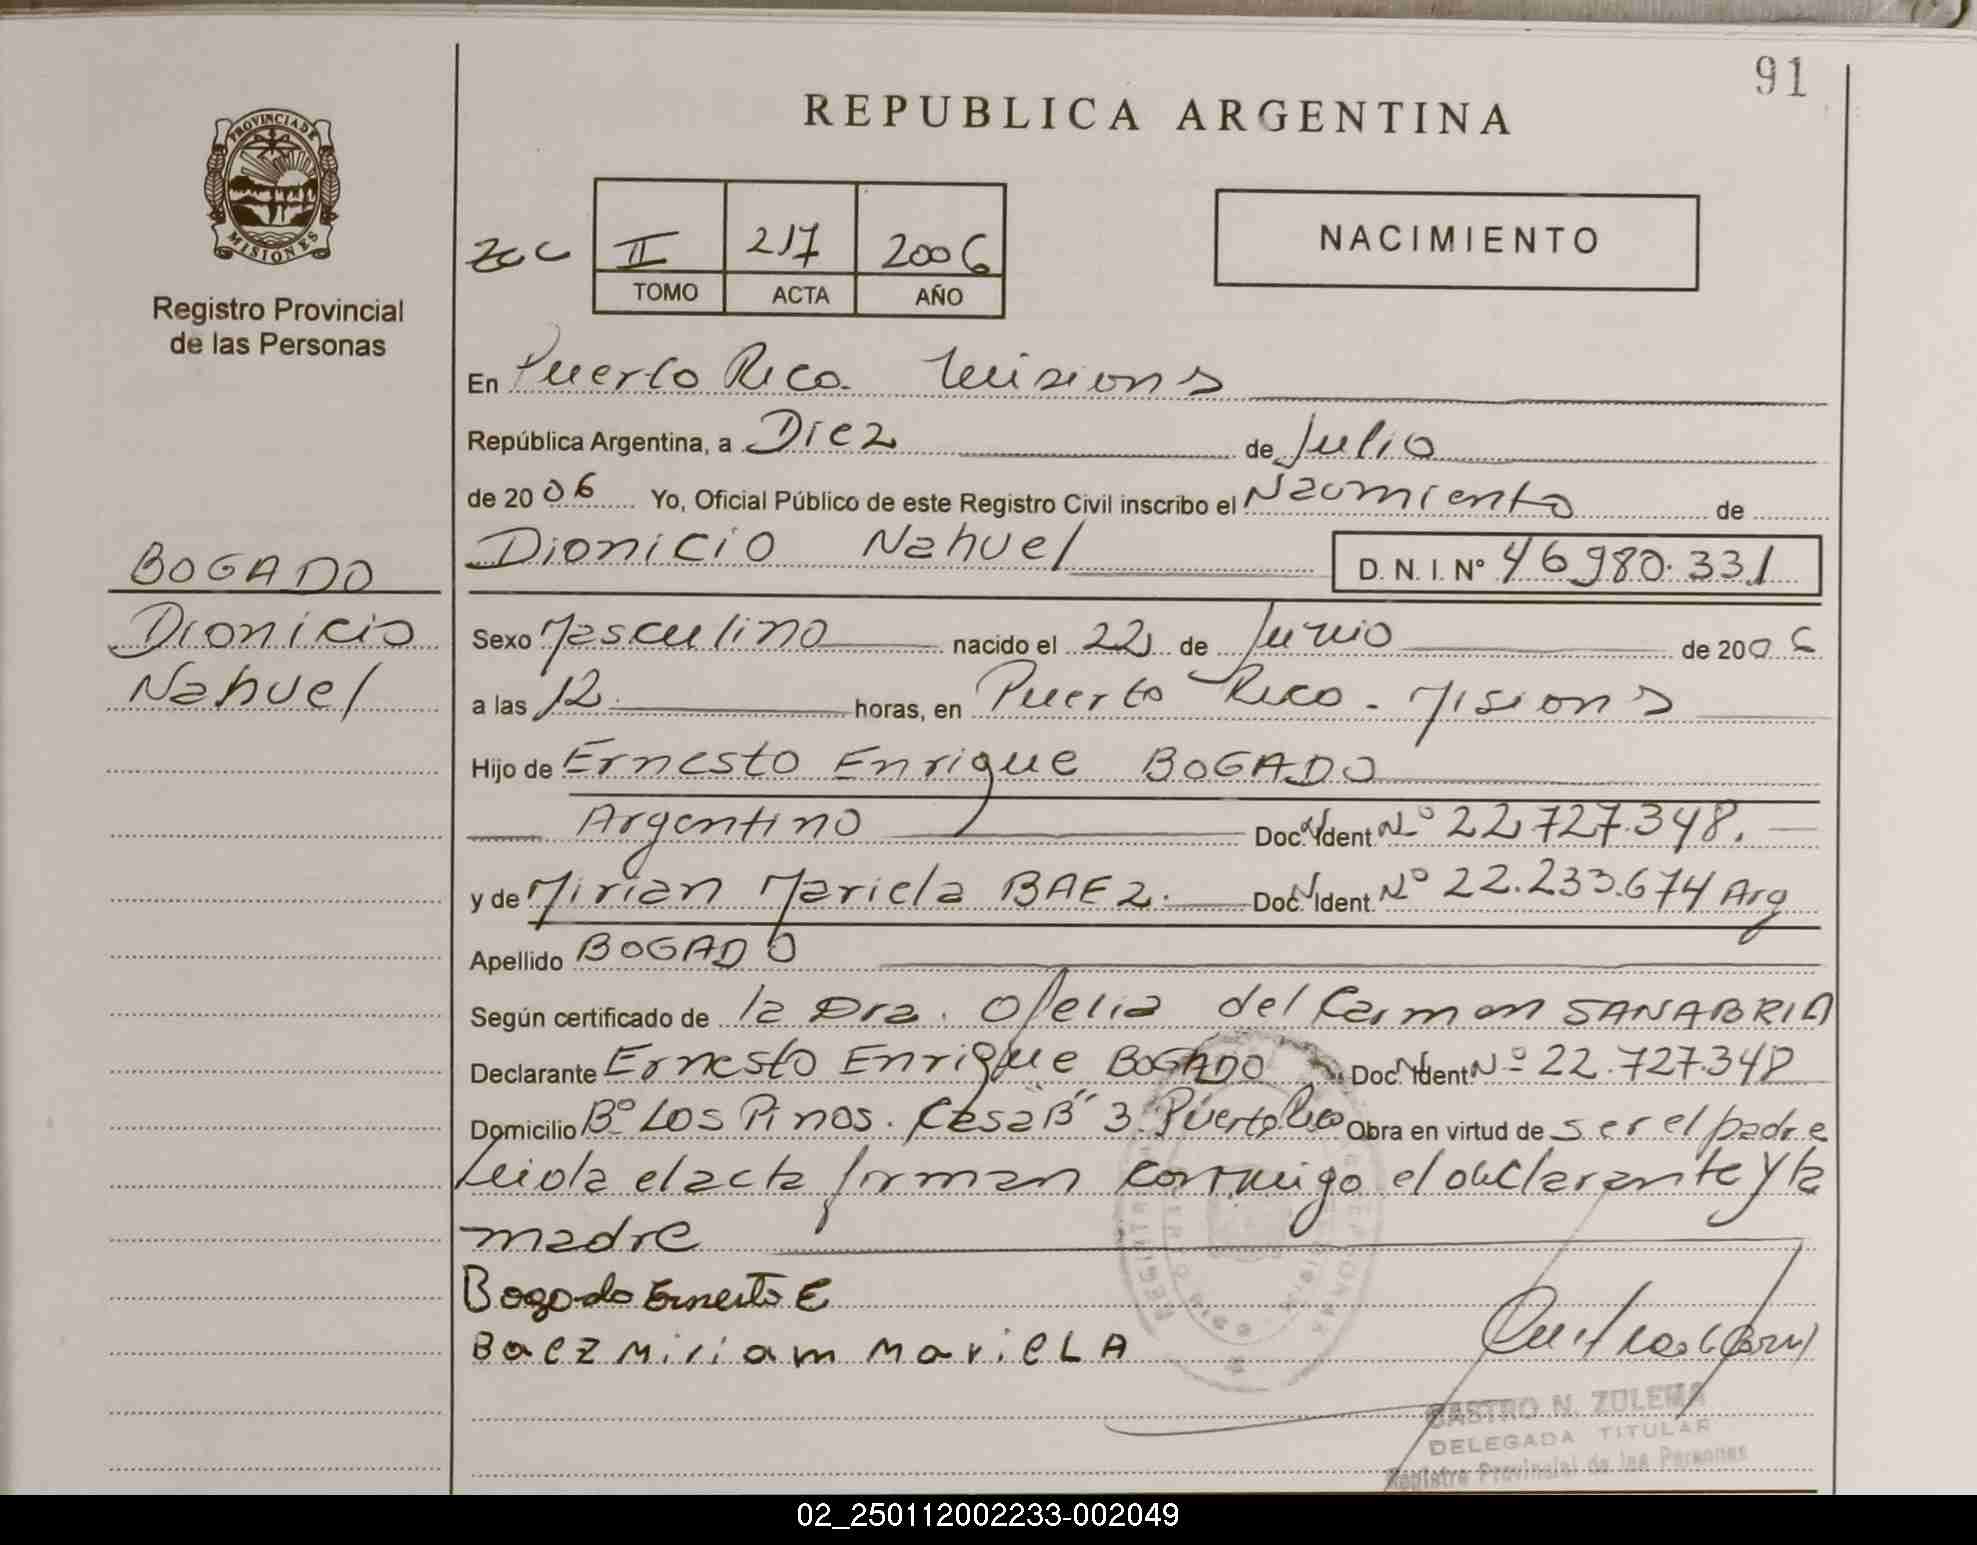 91
REPUBLICA ARGENTINA
PROVINCIA DE
MISIONES
Registro Provincial
de las Personas
II 217 2006
TOMO ACTA AÑO
NACIMIENTO
En Puerto Rico. Misiones
República Argentina, a Diez de Julio
de 2006 Yo, Oficial Público de este Registro Civil inscribo el Nacimiento de
Dionicio Nahuel D. N. I. N° 46 980. 331
BOGADO
Dionicio
Nahuel
Sexo Masculino nacido el 22 de Junio de 2006
a las 12 horas, en Puerto Rico - Misiones
Hijo de Ernesto Enrique BOGADO
Argentino Doc. Ident. N° 22.727.348.
y de Mirian Mariela BAEZ. Doc. Ident. N° 22.233.674 Arg
Apellido BOGADO
Según certificado de la Dra. Ofelia del Carmen SANABRIA
Declarante Ernesto Enrique BOGADO Doc. Ident. N° 22.727.348
Domicilio B° Los Pinos. Casa "B" 3. Puerto Rico Obra en virtud de ser el padre
Leida el acta firman conmigo el declarante y la
madre
Bogado Ernesto E
Baez Miriam MarieLA
CASTRO N. ZULEMA
DELEGADA TITULAR
Registro Provincial de las Personas
02_250112002233-002049